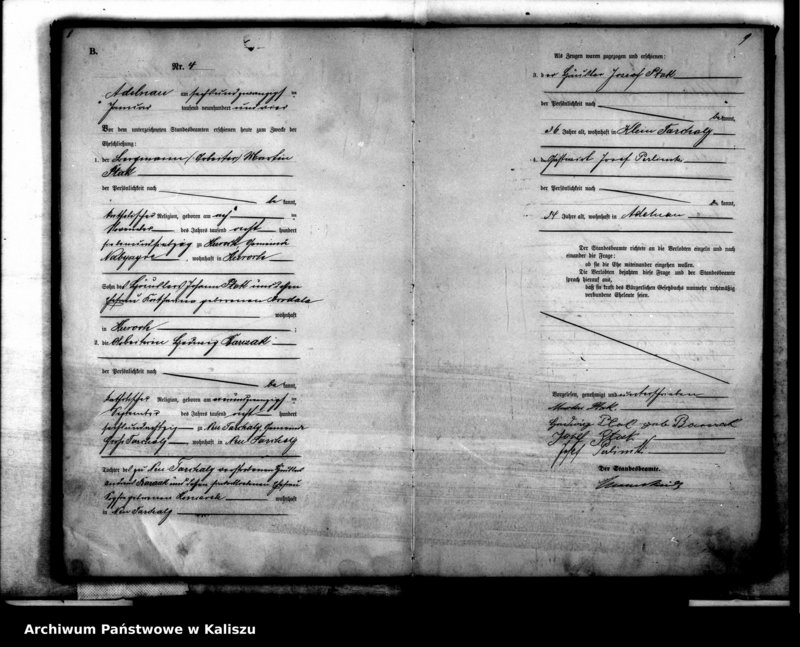 B.
Nr. 4
Adelnau am sechsundzwanzigsten
Januar tausend neunhundert und vier
Vor dem unterzeichneten Standesbeamten erschienen heute zum Zwecke der
Eheschließung:
1. der Bergmann / Arbeiter Martin
Ptak
der Persönlichkeit nach
be kannt,
katholischer Religion, geboren am acht
November des Jahres tausend acht hundert
siebenundsiebzig in Huroch Gemeinde
wohnhaft in
Sohn des Häuslers Johann Ptak und dessen
Ehefrau Katharina geborenen
wohnhaft
in Huroch ;
2. die Arbeiterin Hedwig
der Persönlichkeit nach
be kannt,
katholischer Religion, geboren am neunundzwanzigsten
September des Jahres tausend acht hundert
sechsundachtzig in Neu Tarchaly Gemeinde
Groß Tarchaly wohnhaft in Neu Tarchaly
Tochter des zu Neu Tarchaly verstorbenen Häuslers
und dessen hinterbliebenen Ehefrau
geborenen wohnhaft
in Neu Tarchaly
9
Als Zeugen waren zugezogen und erschienen:
3. der Häusler Josef Ptak
der Persönlichkeit nach
be kannt,
36 Jahre alt, wohnhaft in Klein Tarchaly
4. Gastwirt Josef Perlinski
der Persönlichkeit nach
be kannt,
34 Jahre alt, wohnhaft in Adelnau
Der Standesbeamte richtete an die Verlobten einzeln und nach
einander die Frage:
ob sie die Ehe miteinander eingehen wollen.
Die Verlobten bejahten diese Frage und der Standesbeamte
sprach hierauf aus,
daß sie kraft des Bürgerlichen Gesetzbuchs nunmehr rechtmäßig
verbundene Eheleute seien.
Vorgelesen, genehmigt und unterschrieben
Martin Ptak
Hedwig Ptak geb
Josef Ptak
Josef Perlinski
Der Standesbeamte.
Archiwum Państwowe w Kaliszu